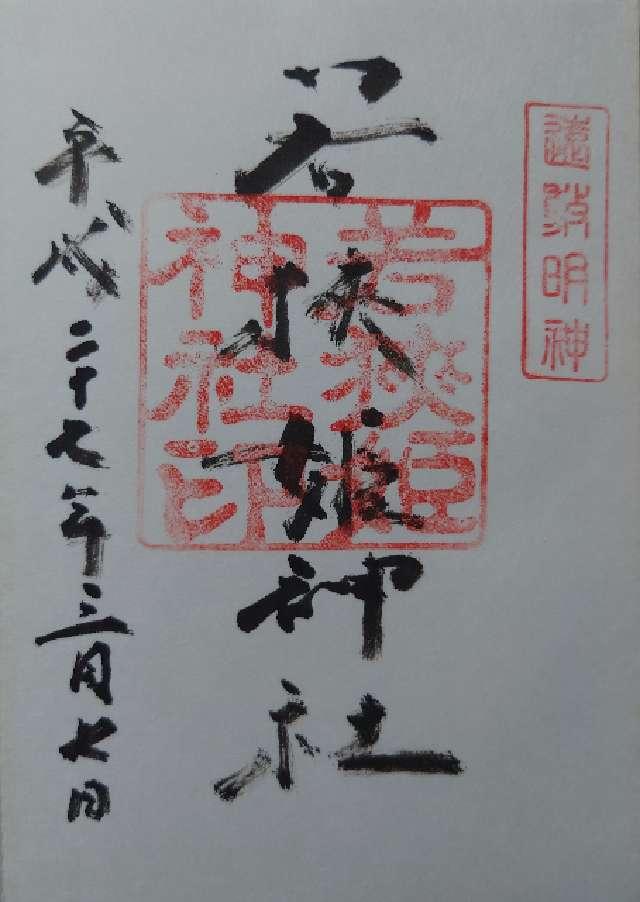 遠敷明神
若狭姫神社
若狭姫
神社印
平成二十七年三月七日